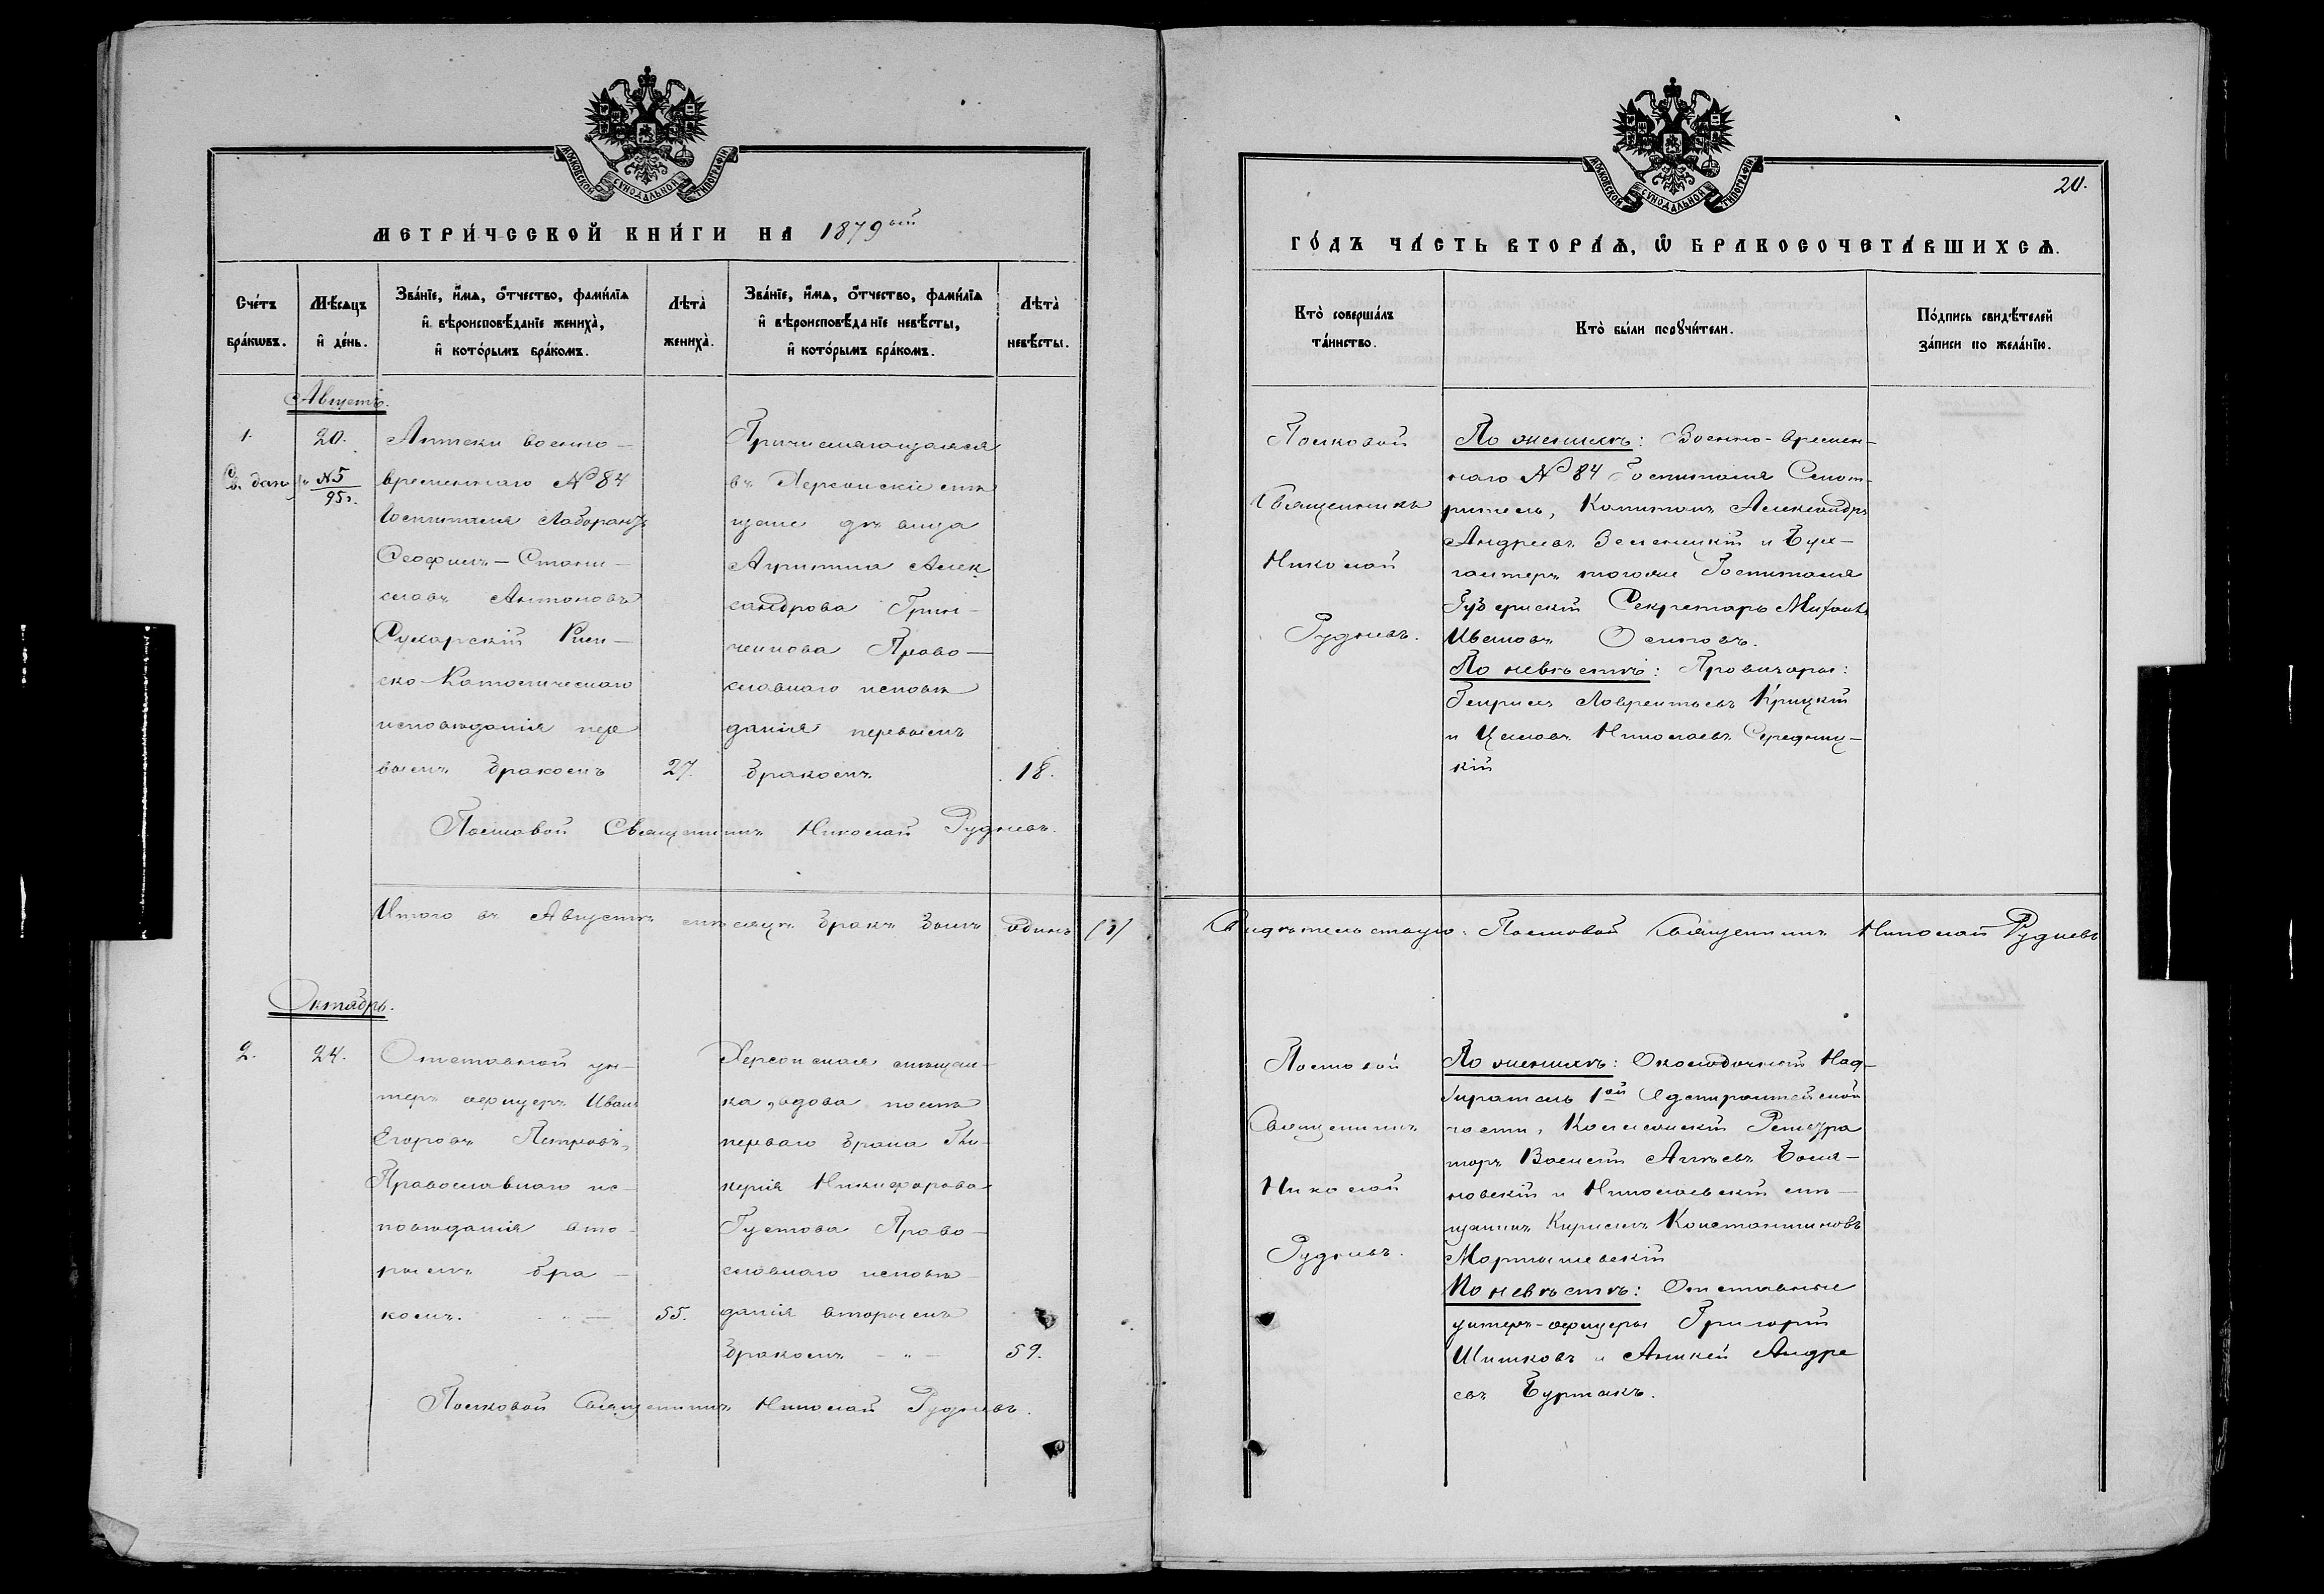 МОСКОВСКОЙ СѴНОДАЛЬНОЙ ТИПОГРАФІИ
МЕТРИ́ЧЕСКОЙ КНИ́ГИ НА 1879ый
Сче́тъ бра́кѡвъ.
Мѣ́сяцъ и҆ де́нь.
Зва́нїе, и҆́мѧ, ѻ҆́тчество, фамилїѧ и҆ вѣроисповѣ́данїе жениха̀, и҆ кото́рымъ бра́комъ.
Лѣта̀ жениха̀.
Зва́нїе, и҆́мѧ, ѻ҆́тчество, фамилїѧ и҆ вѣроисповѣ́данїе невѣ́сты, и҆ кото́рымъ бра́комъ.
Лѣта̀ невѣ́сты.
Августъ.
1.
20.
Св. дано
№5
95 г.
Аптеки военно-
временнаго №84
Госпиталя Лаборантъ
Ѳеофилъ-Стани-
славъ Антоновъ
Сухарскій Рим-
ско-Католическаго
исповѣданія пер
вымъ бракомъ
27.
Причисляющаяся
въ Херсонскіе мѣ
щане дѣвица
Агрипина Алек
сандрова Грин-
ченкова Право-
славнаго исповѣ
данія первымъ
бракомъ
18.
Полковой Священникъ Николай Рудневъ.
Итого въ Августѣ мѣсяцѣ бракъ былъ одинъ (1)
Октябрь.
2.
24.
Отставной ун-
теръ офицеръ Иванъ
Егоровъ Петровъ,
Православнаго ис-
повѣданія вто-
рымъ бра-
комъ.
55.
Херсонская мѣщан-
ка, вдова послѣ
перваго брака Гли-
керія Никифорова
Густова Право-
славнаго исповѣ-
данія вторымъ
бракомъ
59.
Полковой Священникъ Николай Рудневъ.
МОСКОВСКОЙ СѴНОДАЛЬНОЙ ТИПОГРАФІИ
20.
ГО́ДЪ ЧА́СТЬ ВТОРА́Ѧ, Ѡ҆ БРАКОСОЧЕТА́ВШИХСѦ.
Кто̀ соверша́лъ та́инство.
Кто̀ бы́ли порꙋчи́тели.
По́дпись свидѣ́телей за́писи по жела́нїю.
Полковой
Священникъ
Николай
Рудневъ.
По женихѣ: Военно-времен-
наго №84 Госпиталя Смот-
ритель, Капитанъ Александръ
Андреевъ Зеленицкій и Бух-
галтеръ того же Госпиталя
Губернскій Секретарь Михаилъ
Ивановъ Осиповъ.
По невѣстѣ: Провизоры:
Генрихъ Лаврентьевъ Крицкій
и Николаевъ Средниц-
кій
Свидѣтельствую: Полковой Священникъ Николай Рудневъ
Полковой
Священникъ
Николай
Рудневъ.
По женихѣ: Околодочный Над-
зиратель 1ой Адмиралтейской
части, Коллежскій Регистра
торъ Василій Алексѣевъ
новскій и Николаевскій мѣ-
щанинъ Кириллъ Константиновъ
Мартышевскій
По невѣстѣ: Отставные
унтеръ-офицеры Григорій
Шишковъ и Андре
евъ Буртакъ.